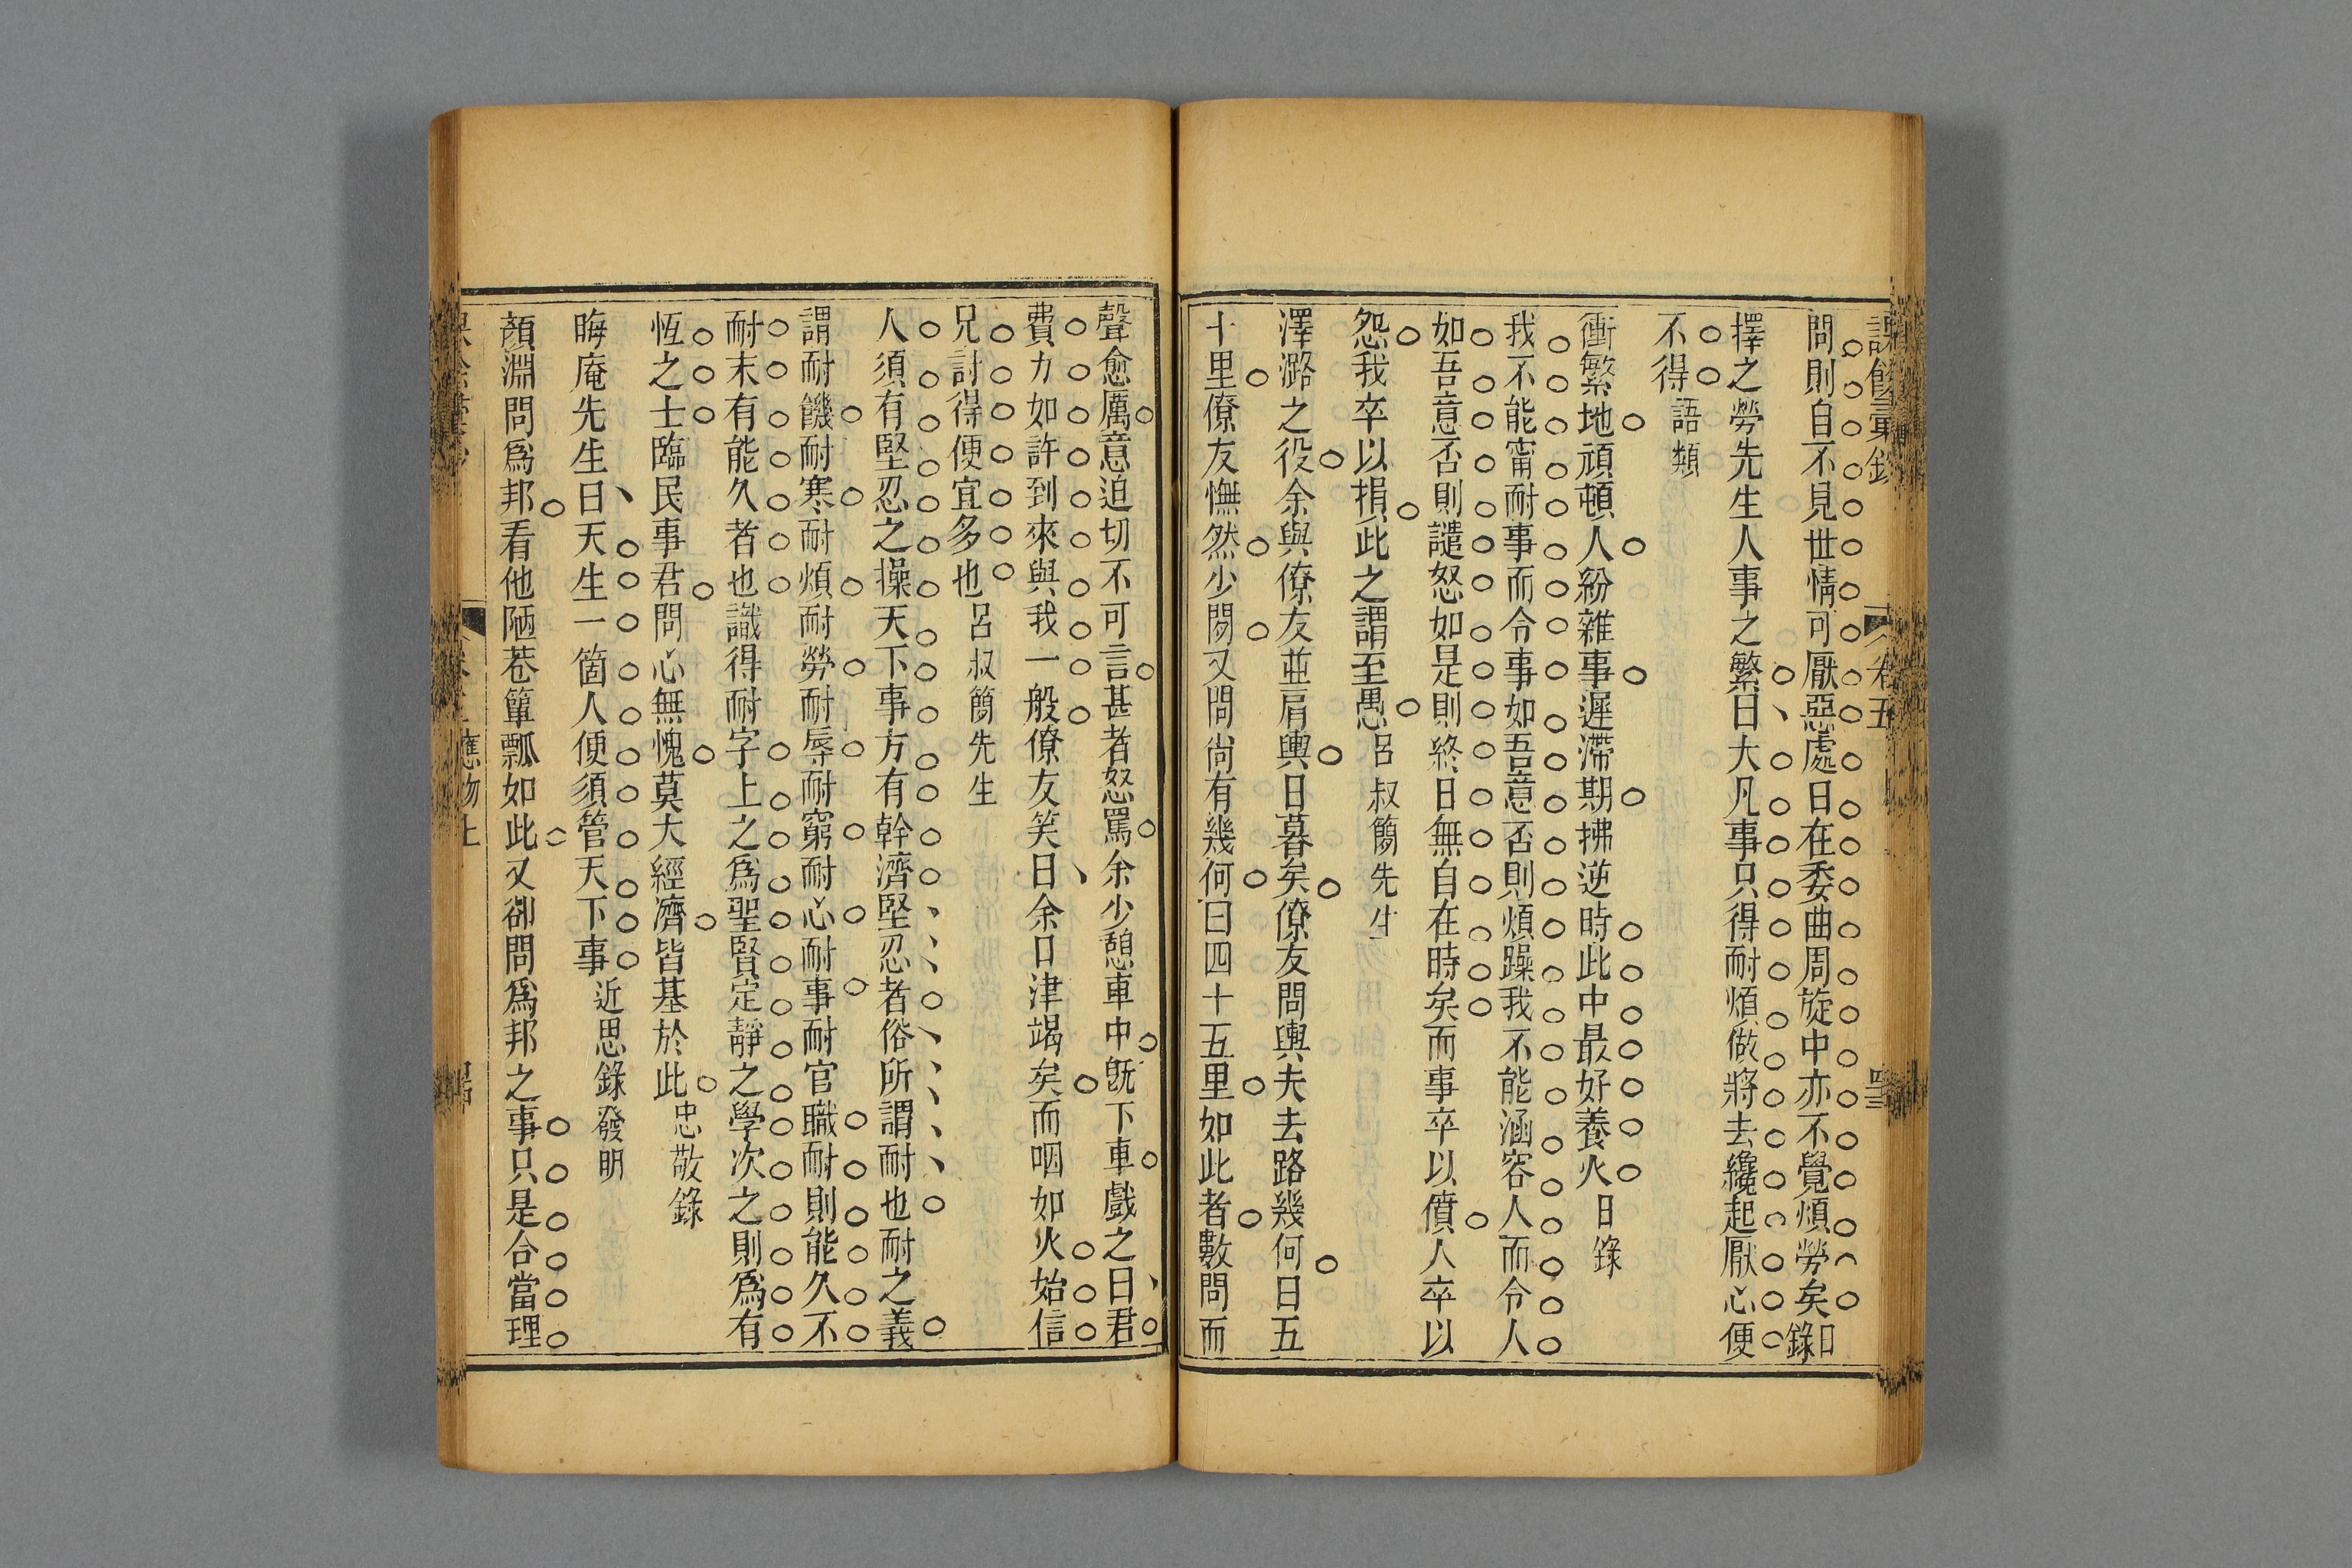 課餘彙鈔 卷五
問則自不見世情可厭惡處日在委曲周旋中亦不覺煩勞矣日錄
擇之勞先生人事之繁曰大凡事只得耐煩做將去纔起厭心便
不得語類
衝繁地頑頓人紛雜事遲滯期拂逆時此中最好養火日錄
我不能甯耐事而令事如吾意否則煩躁我不能涵容人而令人
如吾意否則譴怒如是則終日無自在時矣而事卒以僨人卒以
怨我卒以損此之謂至愚呂叔簡先生
澤潞之役余與僚友並肩輿日暮矣僚友問輿夫去路幾何曰五
十里僚友憮然少閒又問尚有幾何曰四十五里如此者數問而
聲愈厲意迫切不可言甚者怒罵余少憩車中既下車戲之曰君
費力如許到來與我一般僚友笑曰余口津竭矣而咽如火始信
兄討得便宜多也呂叔簡先生
人須有堅忍之操天下事方有幹濟堅忍者俗所謂耐也耐之義
謂耐饑耐寒耐煩耐勞耐辱耐窮耐心耐事耐官職耐則能久不
耐未有能久者也識得耐字上之爲聖賢定靜之學次之則爲有
恆之士臨民事君問心無愧莫大經濟皆基於此忠敬錄
晦庵先生曰天生一箇人便須管天下事近思錄發明
顏淵問爲邦看他陋巷簞瓢如此又卻問爲邦之事只是合當理
應物上